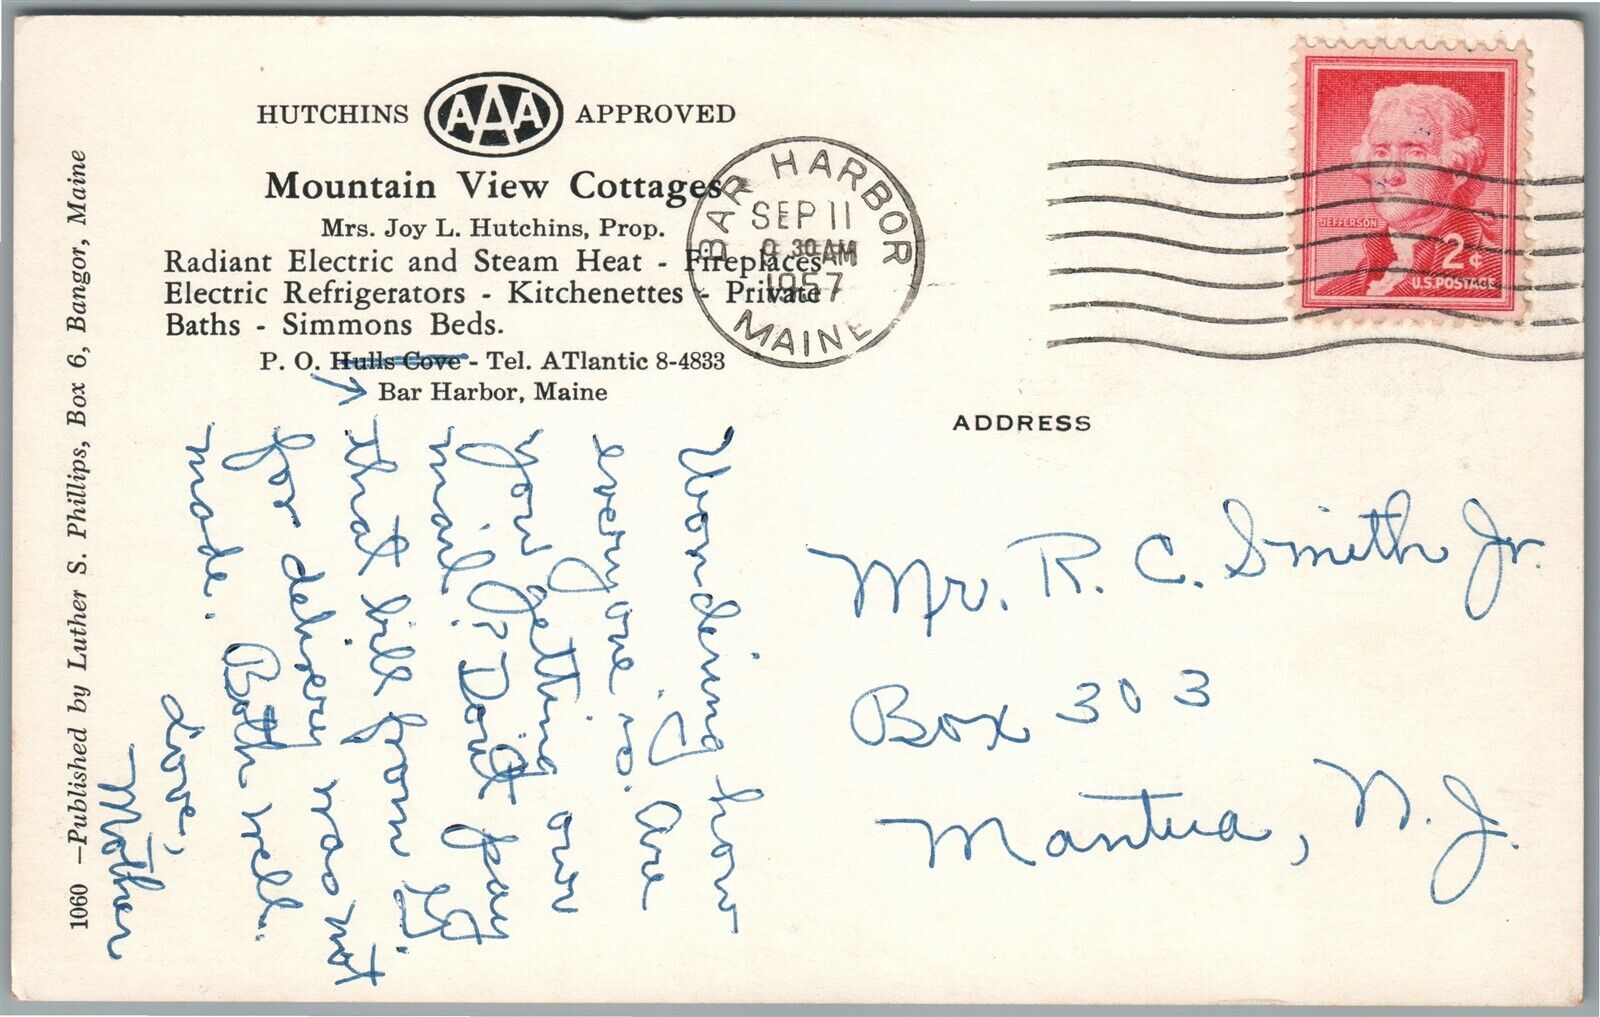 HUTCHINS AAA APPROVED
Mountain View Cottages
Mrs. Joy L. Hutchins, Prop.
Radiant Electric and Steam Heat - Fireplaces
Electric Refrigerators - Kitchenettes - Private
Baths - Simmons Beds.
P. O. Hulls Cove - Tel. ATlantic 8-4833
Bar Harbor, Maine
1060 —Published by Luther S. Phillips, Box 6, Bangor, Maine
BAR HARBOR
SEP 11
9 30 AM
1957
MAINE
JEFFERSON
2¢
U.S. POSTAGE
ADDRESS
Wondering how
everyone is. Are
you getting our
mail? Don't pay
that bill from
for delivery was not
made. Both well.
Love,
Mother
Mr. R. C. Smith Jr.
Box 303
Mantua, N. J.